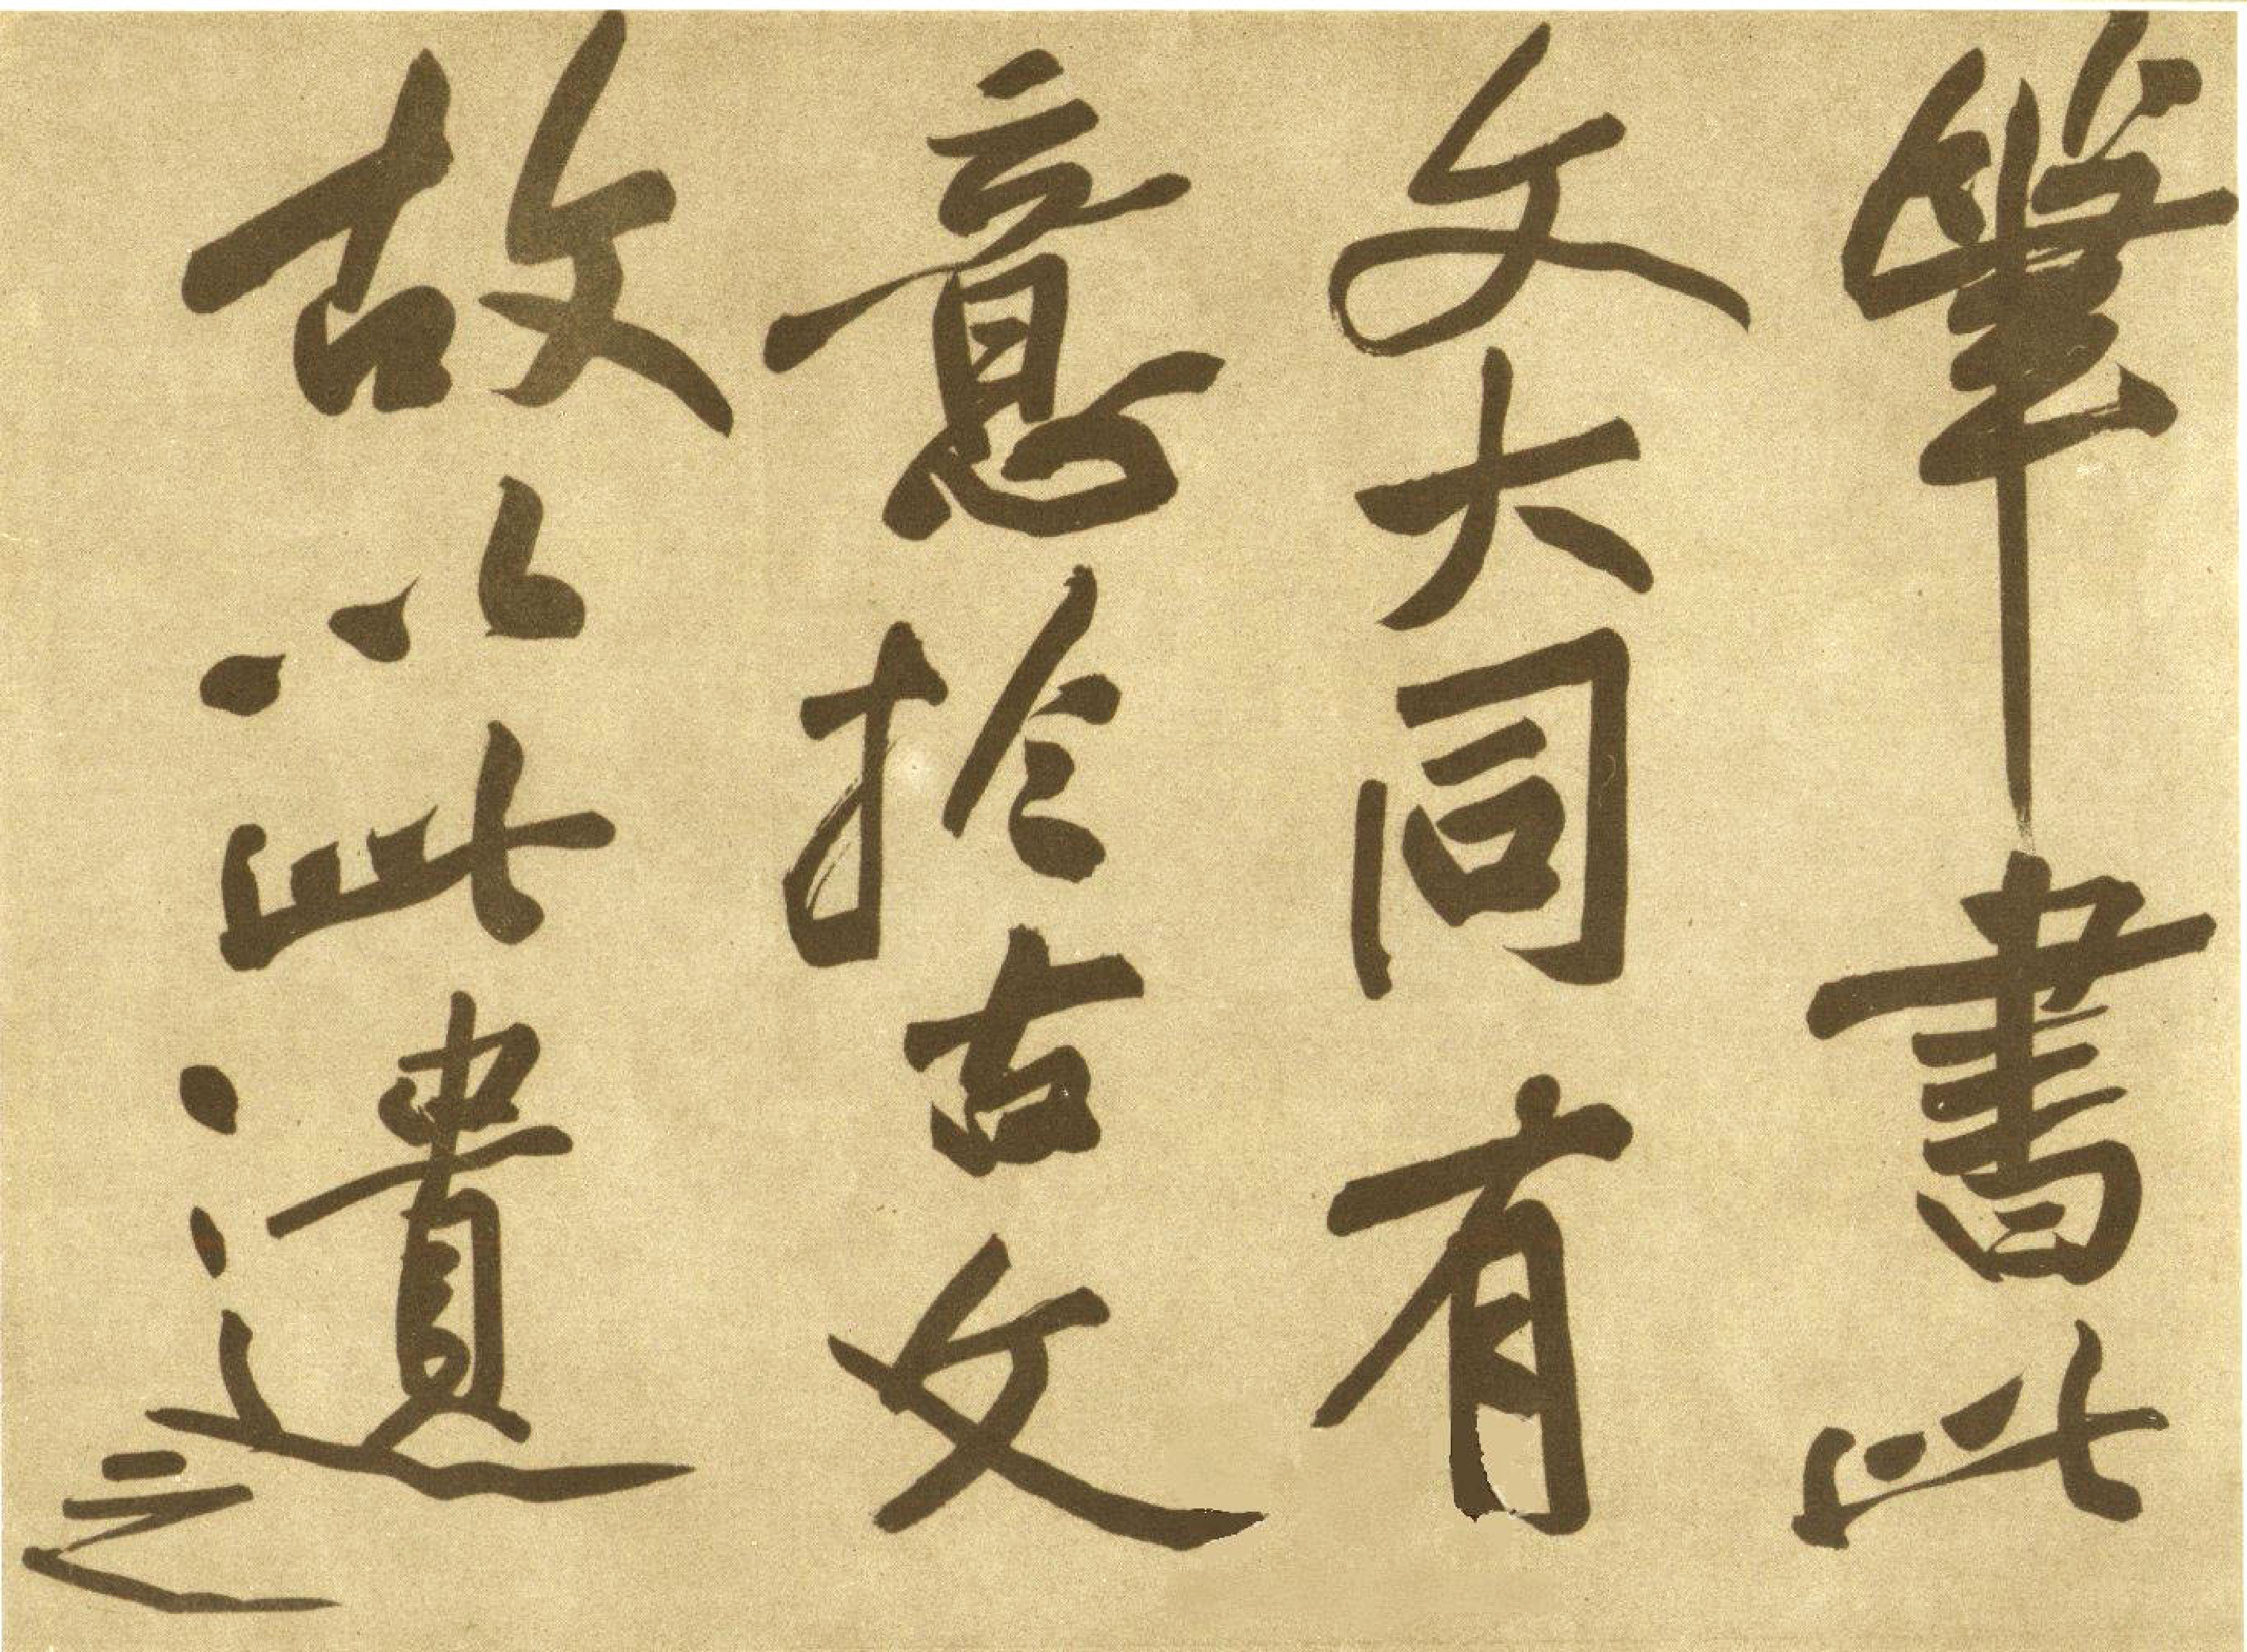 筆書此
文大同有
意扵古文
故以此遺之